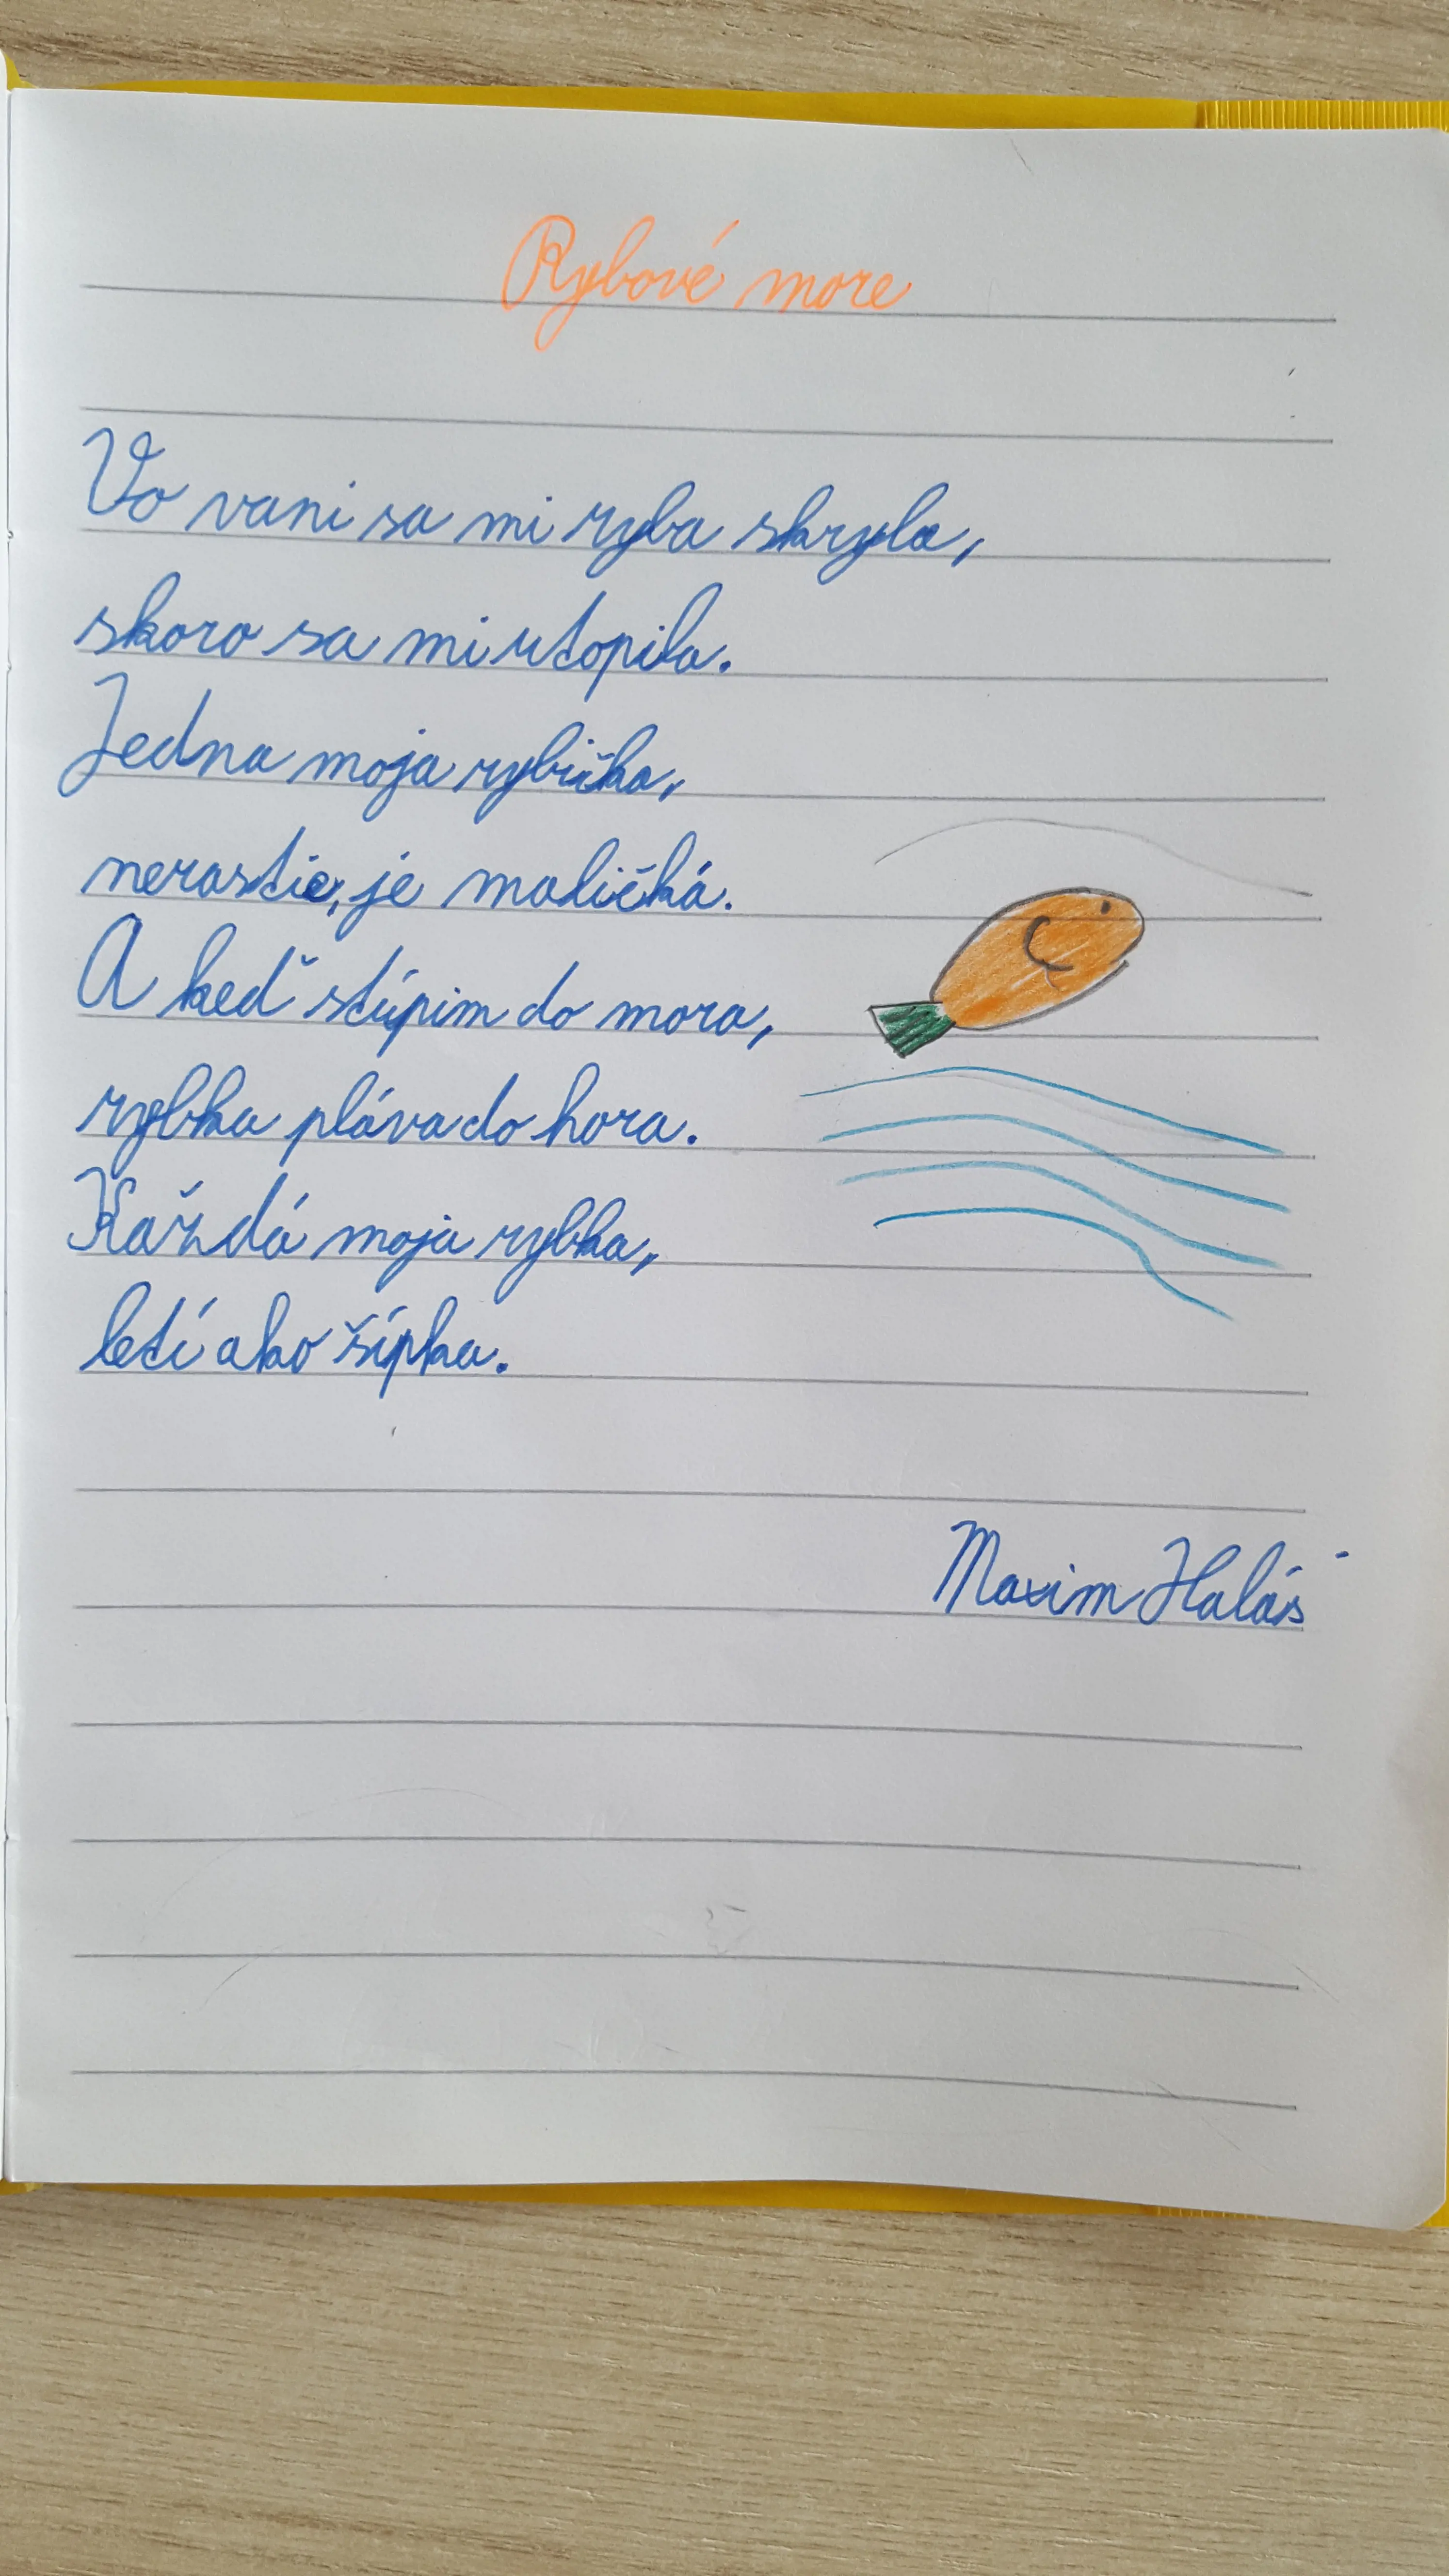 Rybové more
Vo vani sa mi ryba skryla,
skoro sa mi utopila.
Jedna moja rybička,
nerastie, je maličká.
A keď stúpim do mora,
rybka pláva do hora.
Každá moja rybka,
letí ako šípka.
Maxim Halás